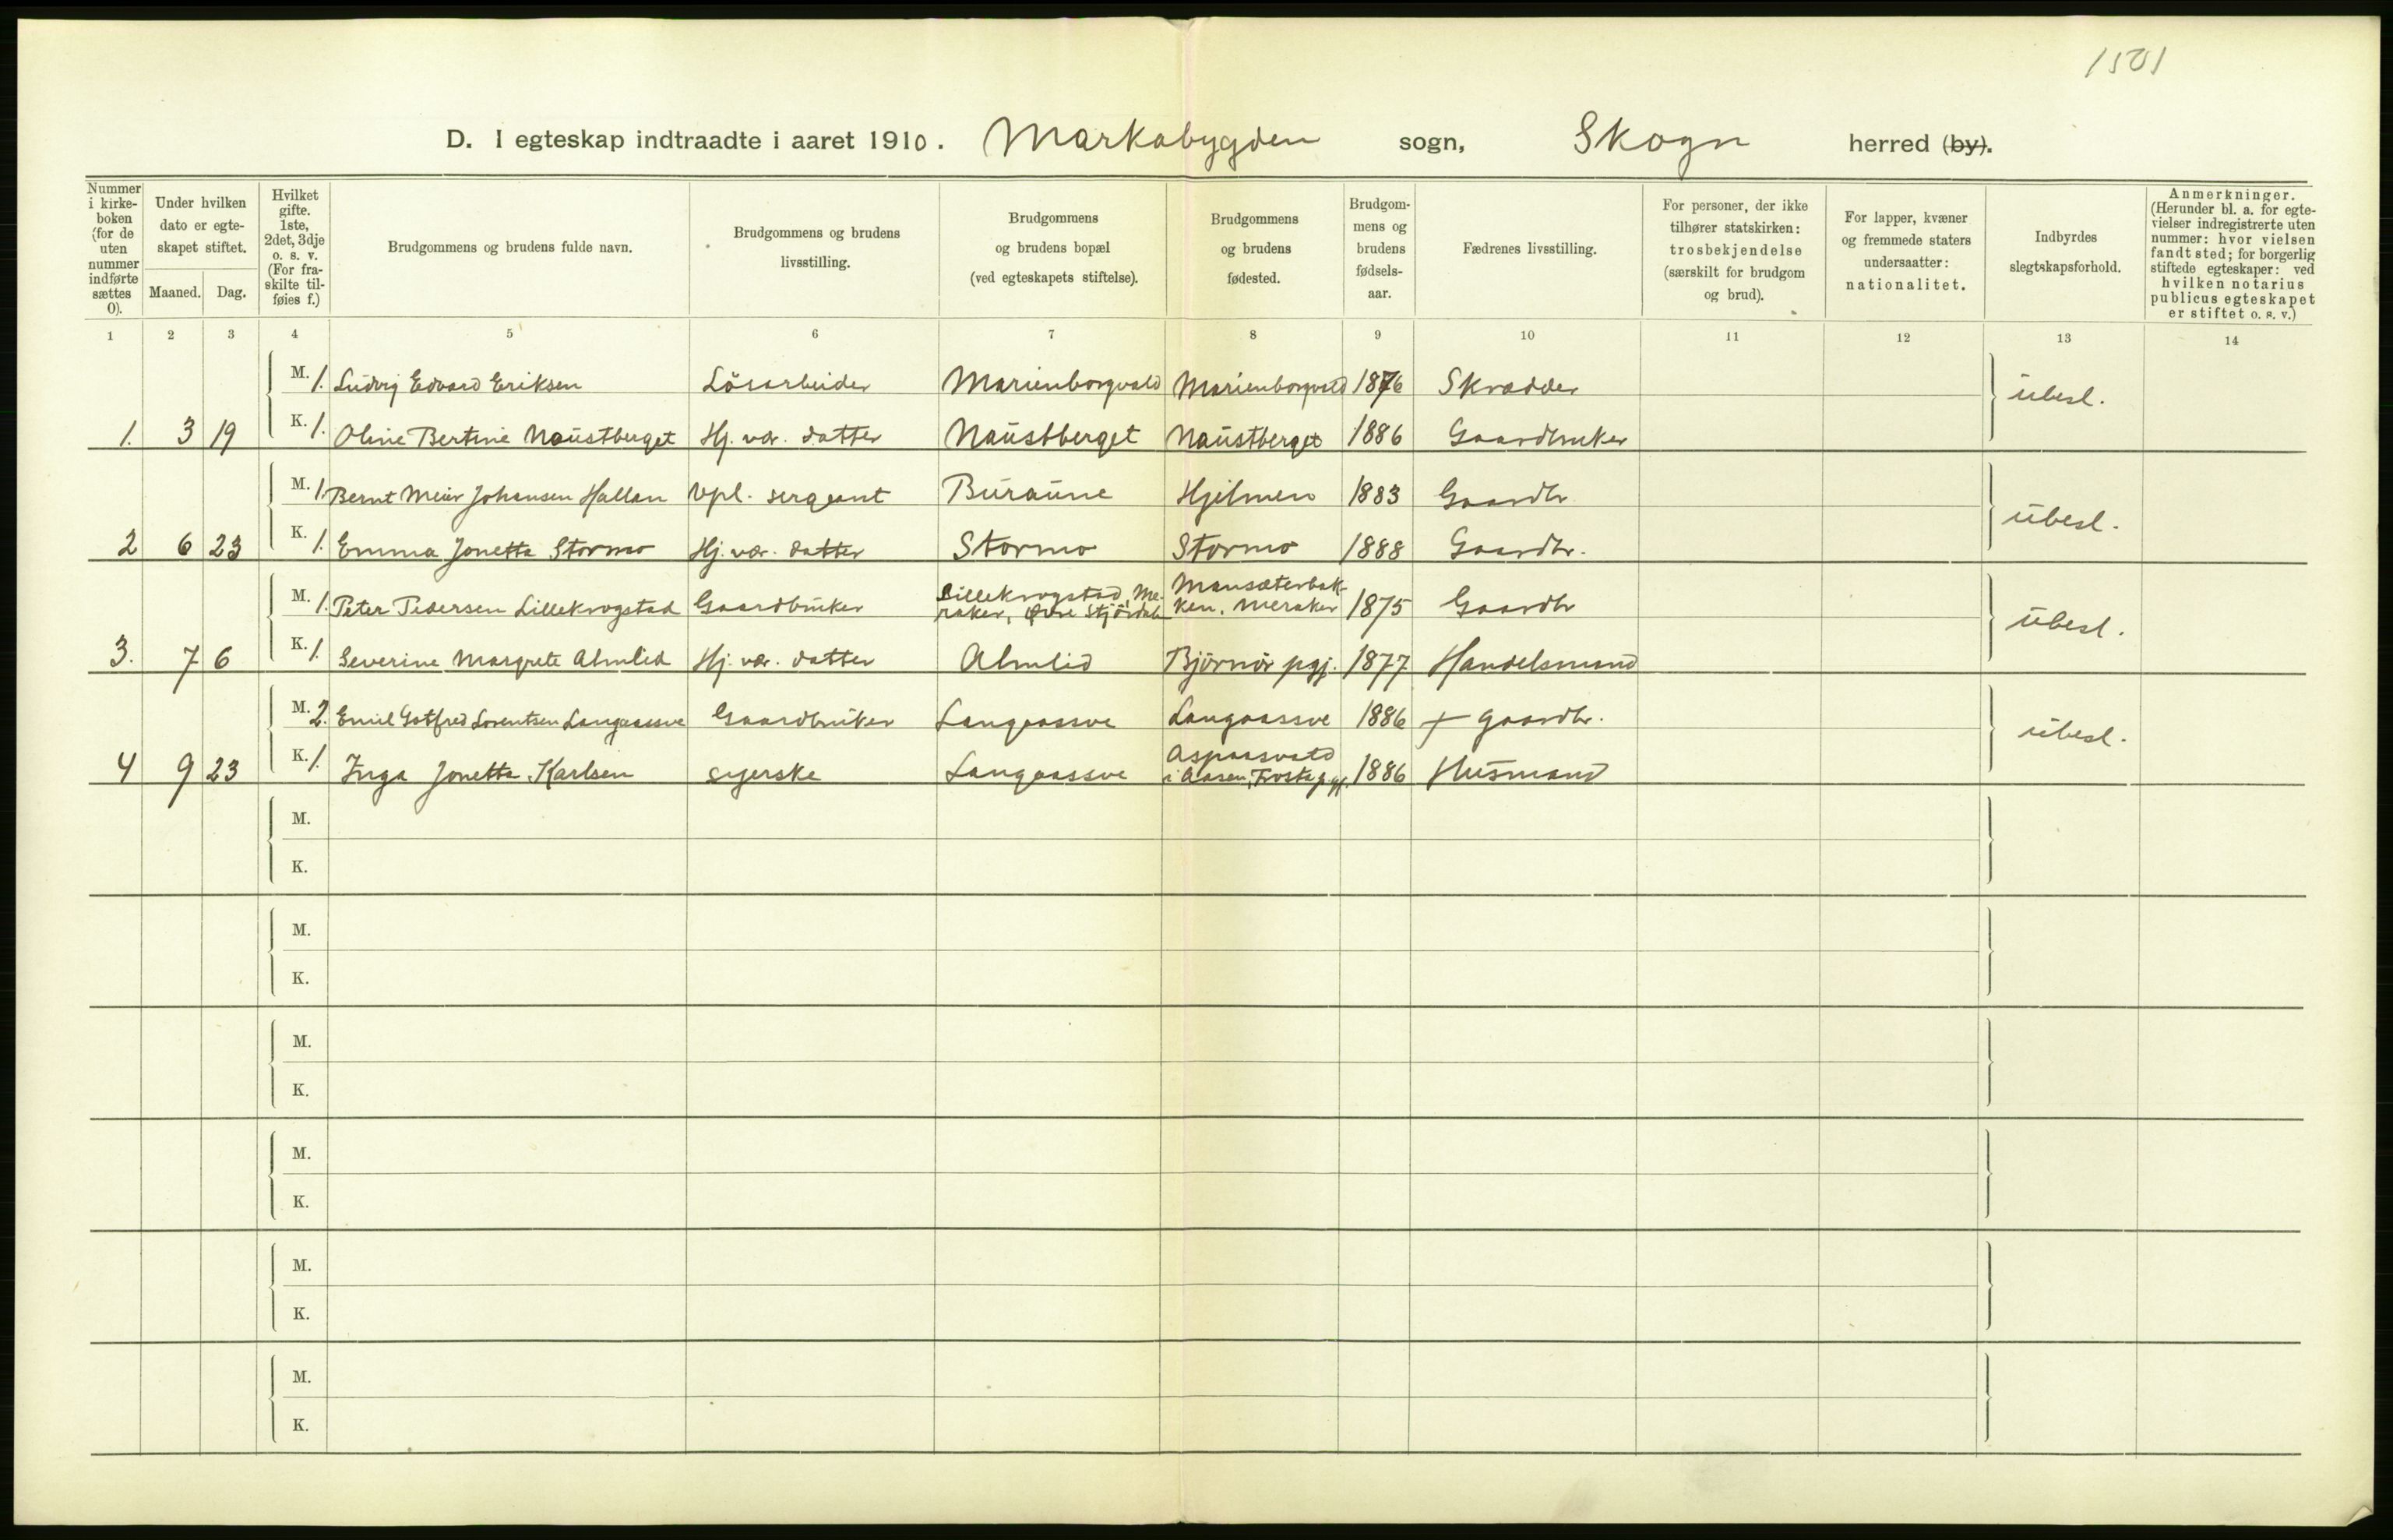 1501
D. I egteskap indtraadte i aaret 1910. Markabygden sogn, Skogn herred (by).
Nummer i kirke-boken (for de uten nummer indførte sættes 0).
Under hvilken dato er egte-skapet stiftet.
Maaned. Dag.
Hvilket gifte. 1ste, 2det, 3dje o. s. v. (For fra-skilte til-føies f.)
Brudgommens og brudens fulde navn.
Brudgommens og brudens livsstilling.
Brudgommens og brudens bopæl (ved egteskapets stiftelse).
Brudgommens og brudens fødested.
Brudgom-mens og brudens fødsels-aar.
Fædrenes livsstilling.
For personer, der ikke tilhører statskirken: trosbekjendelse (særskilt for brudgom og brud).
For lapper, kvæner og fremmede staters undersaatter: nationalitet.
Indbyrdes slegtskapsforhold.
Anmerkninger. (Herunder bl. a. for egte-vielser indregistrerte uten nummer: hvor vielsen fandt sted; for borgerlig stiftede egteskaper: ved hvilken notarius publicus egteskapet er stiftet o. s. v.)
1 2 3 4 5 6 7 8 9 10 11 12 13 14
M. 1. Ludvig Edvard Eriksen Lösarbeider Marienborgvald Marienborgvald 1876 Skrædder
ubesl.
1. 3 19 K. 1. Oline Bertine Naustberget Hj. vær. datter Naustberget Naustberget 1886 Gaardbruker
M. 1 Bernt Meier Johansen Hallan Vpl. sergeant Buraune Hjelmen 1883 Gaardbr.
ubesl.
2 6 23 K. 1. Emma Jonetta Stormo Hj. vær. datter Stormo Stormo 1888 Gaardbr.
M. 1. Peter Pedersen Lillekrogstad Gaardbruker Lillekrogstad, Me-raker, Øvre Stjördalen Mansæterbak-ken, Meraker 1875 Gaardbr
ubesl.
3. 7 6 K. 1. Severine Margrete Almlid Hj. vær. datter Almlid Björnör pgj. 1877 Handelsmand
M. 2. Emil Gotfred Lorentsen Langaassve Gaardbruker Langaassve Langaassve 1886 + gaardbr.
ubesl.
4 9 23 K. 1. Inga Jonetta Karlsen syerske Langaassve Aspaasvald i Aasen, Frosta pgj. 1886 Husmand
M.
K.
M.
K.
M.
K.
M.
K.
M.
K.
M.
K.